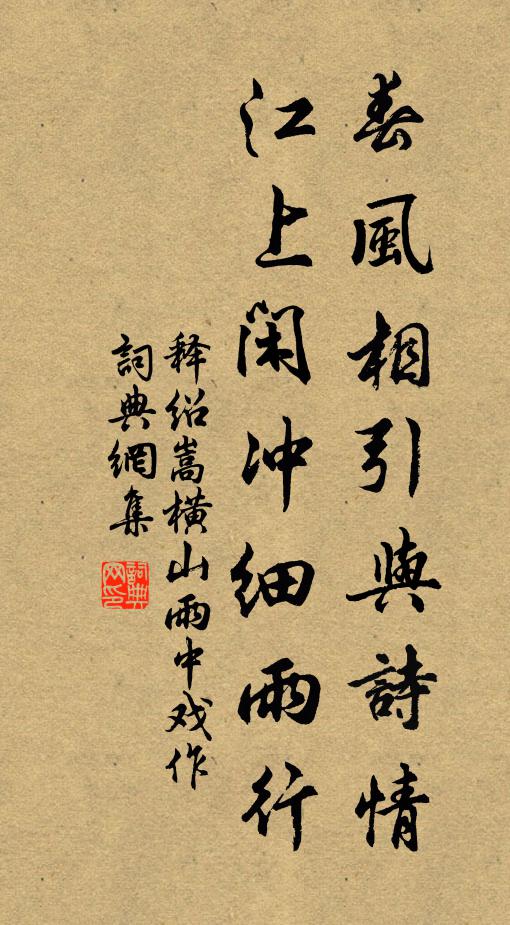 春風相引與詩情
江上閑冲细雨行
释绍嵩橫山雨中戏作
詞典網集
詞典网印